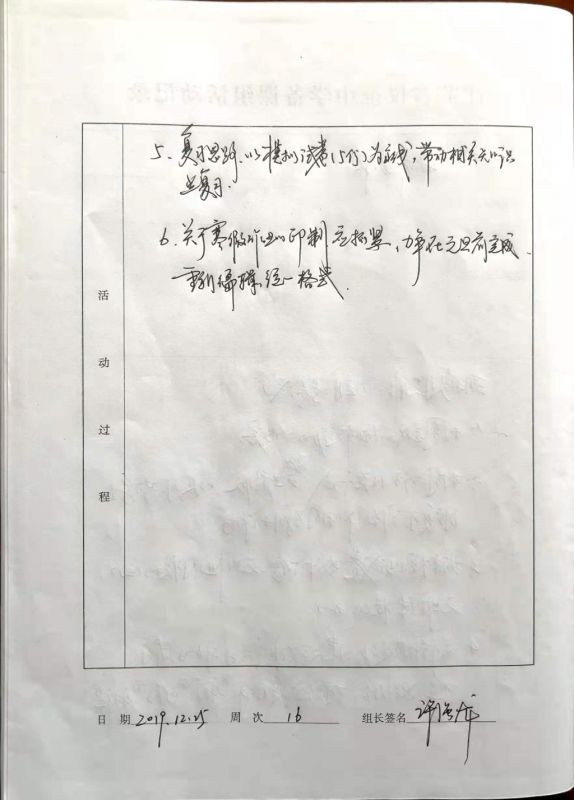 5、复习思路：以模拟试卷（5份）为主线，带动相关知识
点复习.
6、关于寒假作业的印制应抓紧，力争在元旦前完成.
统一格式.
活
动
过
程
日 期 2019.12.25 周 次 16 组长签名